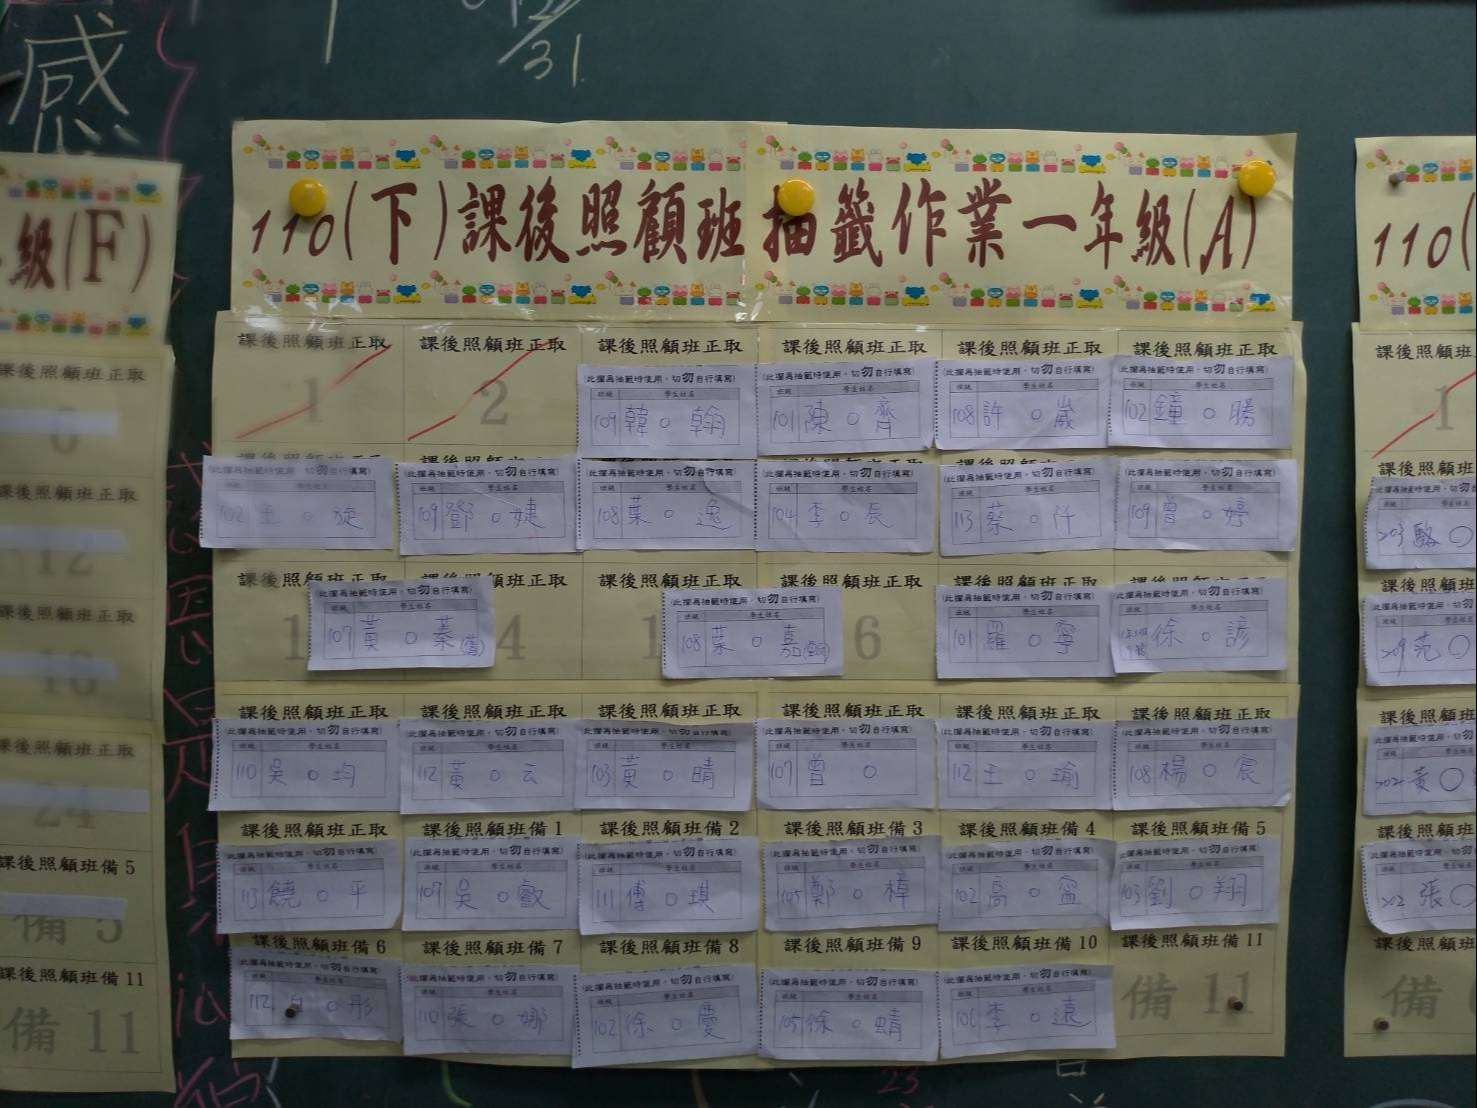 感
31
級(F)
110(下)課後照顧班抽籤作業一年級(A)
110(
課後照顧班正取 課後照顧班正取 課後照顧班正取 課後照顧班正取 課後照顧班正取 課後照顧班正取
1 2
(此攔為抽籤時使用，切勿自行填寫) (此攔為抽籤時使用，切勿自行填寫) (此攔為抽籤時使用，切勿自行填寫) (此攔為抽籤時使用，切勿自行填寫)
班級 學生姓名 班級 學生姓名 班級 學生姓名 班級 學生姓名
109 韓○翰 101 陳○齊 108 許○崴 102 鐘○勝
(此攔為抽籤時使用，切勿自行填寫) (此攔為抽籤時使用，切勿自行填寫) (此攔為抽籤時使用，切勿自行填寫) (此攔為抽籤時使用，切勿自行填寫) (此攔為抽籤時使用，切勿自行填寫) (此攔為抽籤時使用，切勿自行填寫)
班級 學生姓名 班級 學生姓名 班級 學生姓名 班級 學生姓名 班級 學生姓名 班級 學生姓名
102 王○旋 109 鄧○婕 108 葉○逸 104 李○長 113 蔡○仟 109 曾○婷
課後照顧班正取 課後照顧班正取 課後照顧班正取 課後照顧班正取 課後照顧班正取 課後照顧班正取
(此攔為抽籤時使用，切勿自行填寫) (此攔為抽籤時使用，切勿自行填寫) (此攔為抽籤時使用，切勿自行填寫) (此攔為抽籤時使用，切勿自行填寫)
班級 學生姓名 班級 學生姓名 班級 學生姓名 班級 學生姓名
1 107 黃○蓁 4 1 108 葉○嘉 6 101 羅○寧 徐○諺
課後照顧班正取 課後照顧班正取 課後照顧班正取 課後照顧班正取 課後照顧班正取 課後照顧班正取
班級 學生姓名 班級 學生姓名 班級 學生姓名 班級 學生姓名 班級 學生姓名 班級 學生姓名
110 吳○均 112 黃○云 103 黃○晴 107 曾○ 112 王○瑜 108 楊○宸
課後照顧班正取 課後照顧班備1 課後照顧班備2 課後照顧班備3 課後照顧班備4 課後照顧班備5
(此攔為抽籤時使用，切勿自行填寫) (此攔為抽籤時使用，切勿自行填寫) (此攔為抽籤時使用，切勿自行填寫) (此攔為抽籤時使用，切勿自行填寫) (此攔為抽籤時使用，切勿自行填寫) (此攔為抽籤時使用，切勿自行填寫)
班級 學生姓名 班級 學生姓名 班級 學生姓名 班級 學生姓名 班級 學生姓名 班級 學生姓名
113 饒○平 109 吳○叡 111 傅○琪 105 鄭○樟 102 高○甯 103 劉○翔
課後照顧班備6 課後照顧班備7 課後照顧班備8 課後照顧班備9 課後照顧班備10 課後照顧班備11
(此攔為抽籤時使用，切勿自行填寫) (此攔為抽籤時使用，切勿自行填寫) (此攔為抽籤時使用，切勿自行填寫) (此攔為抽籤時使用，切勿自行填寫) (此攔為抽籤時使用，切勿自行填寫)
班級 學生姓名 班級 學生姓名 班級 學生姓名 班級 學生姓名 班級 學生姓名
112 ○彤 110 張○娜 102 徐○慶 105 徐○蜻 106 李○遠 備11
課後照顧班正取
6
課後照顧班正取
12
課後照顧班正取
18
課後照顧班正取
24
課後照顧班備5
備5
課後照顧班備11
備11
課後照顧班
1
課後照顧班
203 駱○
課後照顧班
209 范○
課後照顧班
202 黃○
課後照顧班
202 張○
課後照顧班
備
23